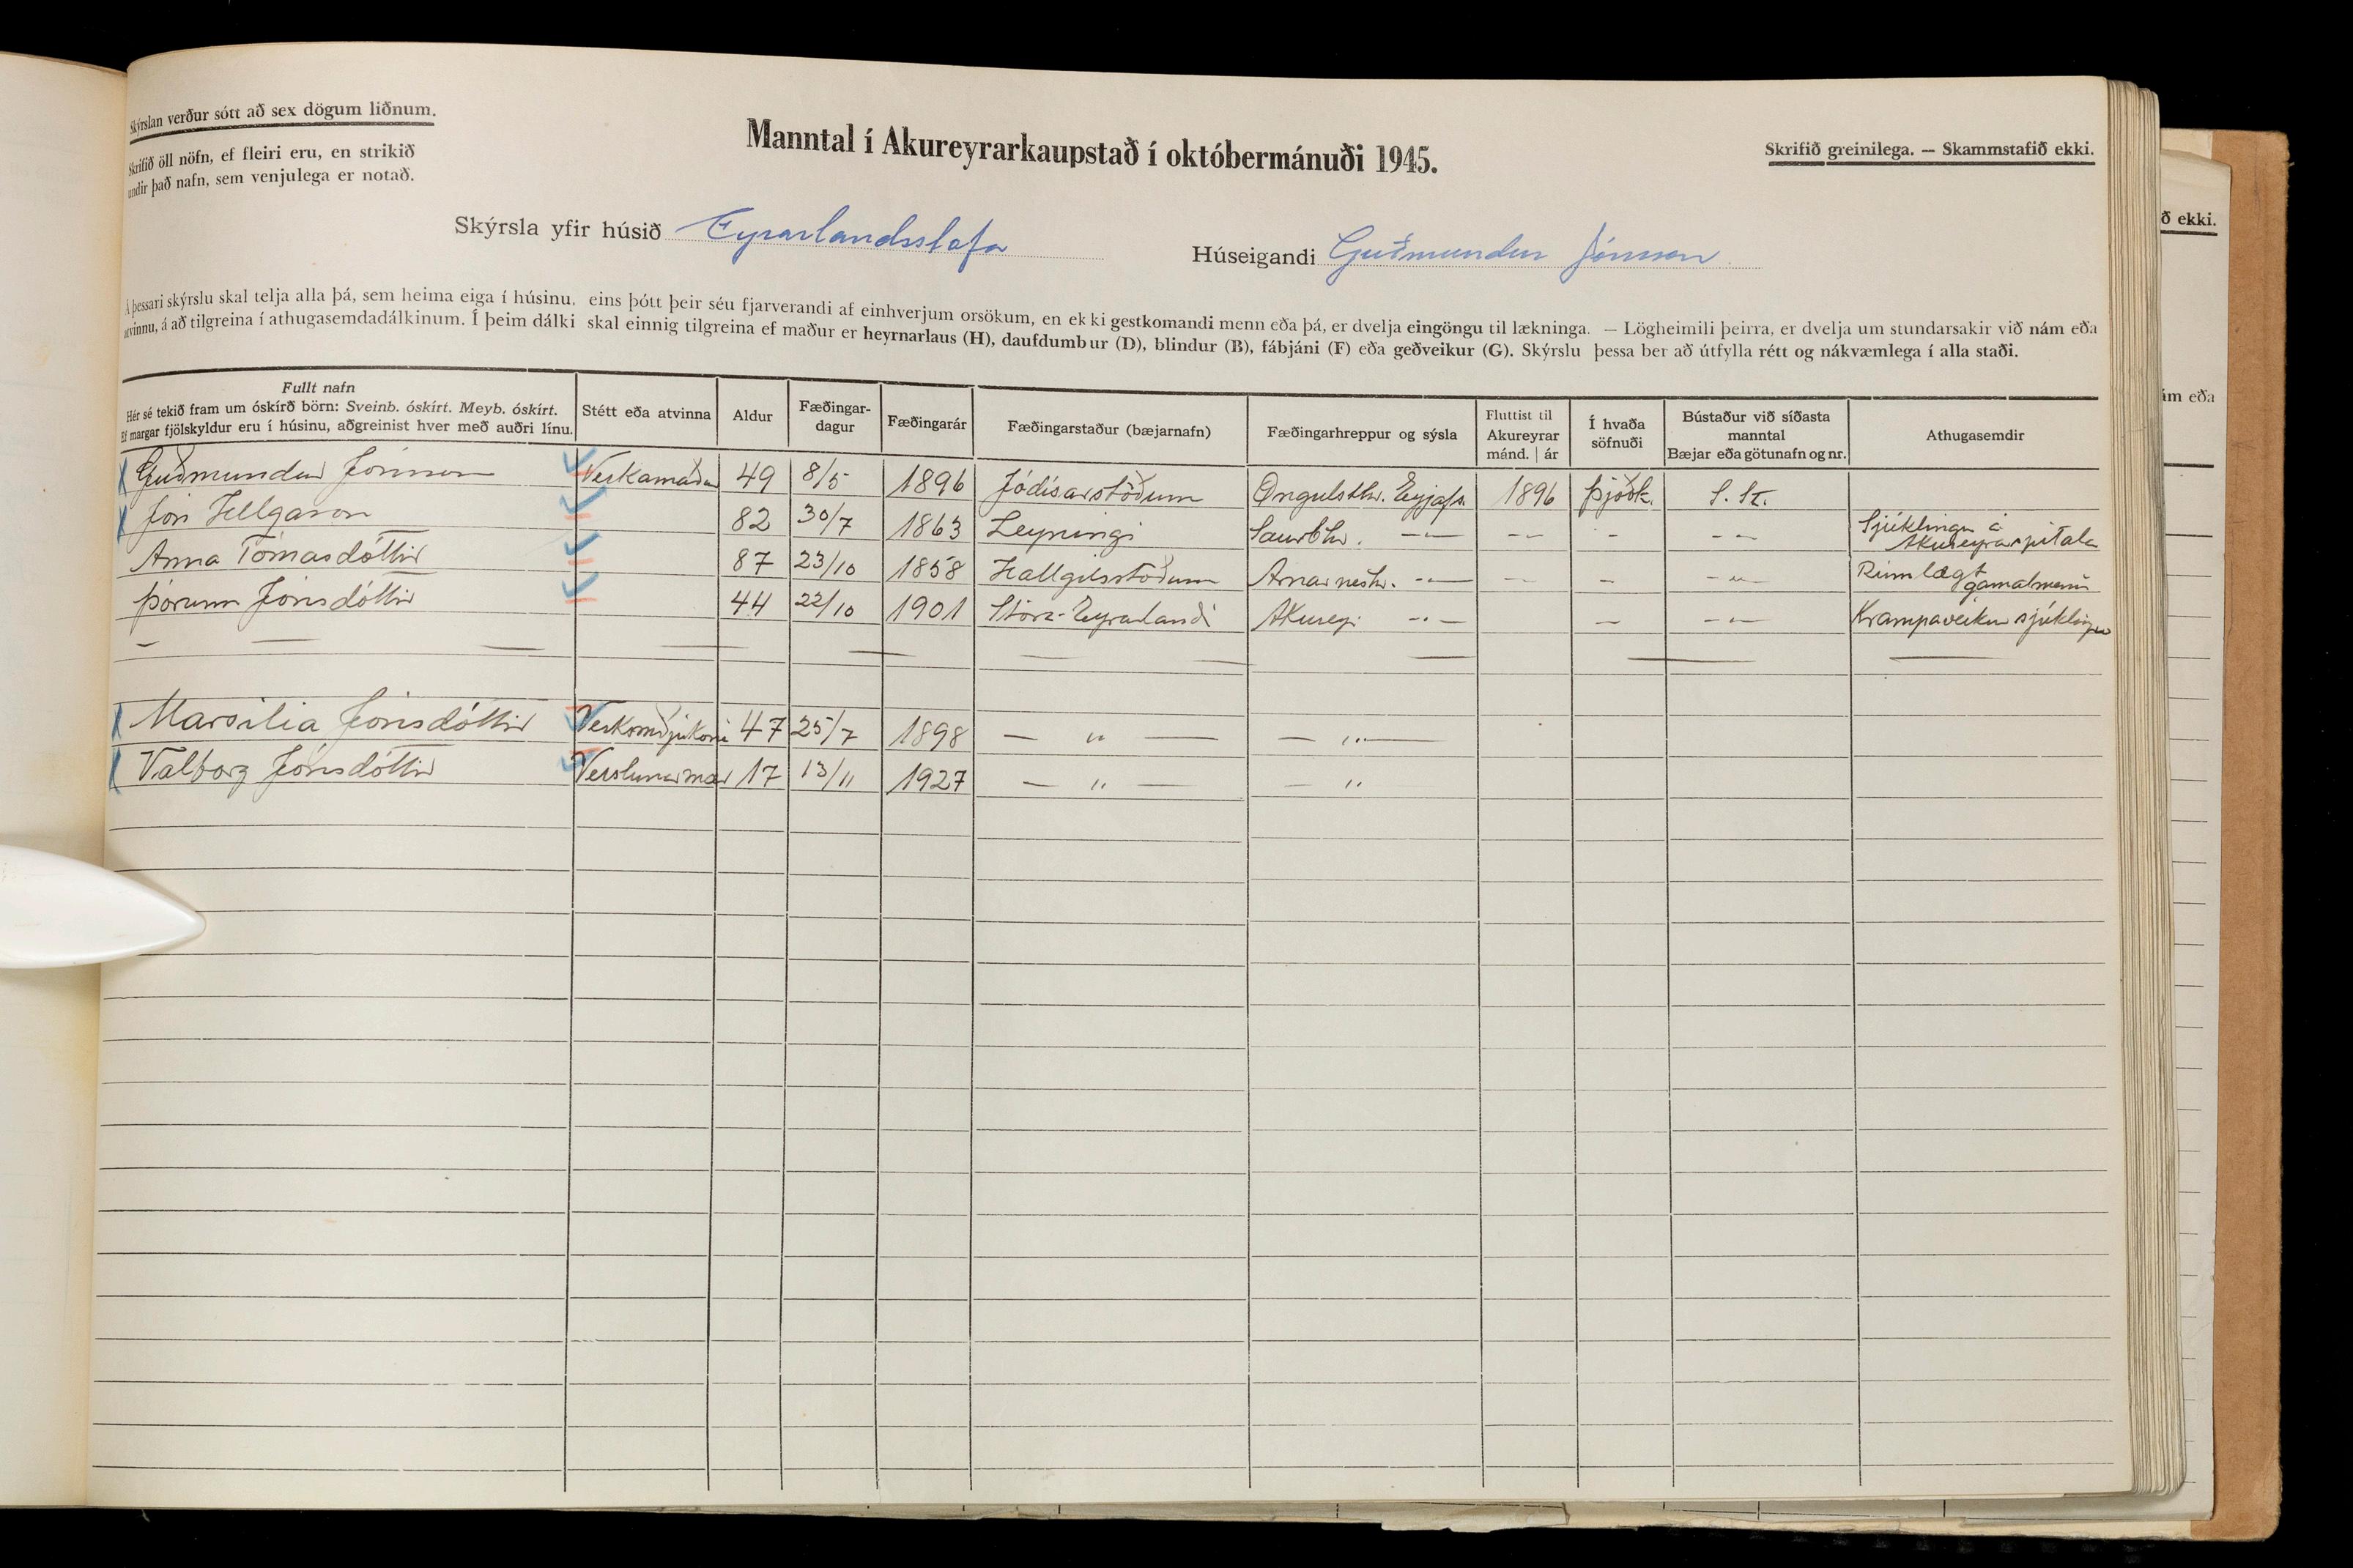 Skýrslan verður sótt að sex dögum liðnum.
Skrifið öll nöfn, ef fleiri eru, en strikið
undir það nafn, sem venjulega er notað.
Manntal í Akureyrarkaupstað í októbermánuði 1945.
Skrifið greinilega. — Skammstafið ekki.
ð ekki.
Skýrsla yfir húsið Eyrarlandsstofa Húseigandi Guðmundur Jónsson
Á þessari skýrslu skal telja alla þá, sem heima eiga í húsinu, eins þótt þeir séu fjarverandi af einhverjum orsökum, en ekki gestkomandi menn eða þá, er dvelja eingöngu til lækninga. — Lögheimili þeirra, er dvelja um stundarsakir við nám eða
atvinnu, á að tilgreina í athugasemdadálkinum. Í þeim dálki skal einnig tilgreina ef maður er heyrnarlaus (H), daufdumbur (D), blindur (B), fábjáni (F) eða geðveikur (G). Skýrslu þessa ber að útfylla rétt og nákvæmlega í alla staði.
ám eða
Fullt nafn
Hér sé tekið fram um óskírð börn: Sveinb. óskírt. Meyb. óskírt.
Ef margar fjölskyldur eru í húsinu, aðgreinist hver með auðri línu.
Stétt eða atvinna
Aldur
Fæðingar-
dagur
Fæðingarár
Fæðingarstaður (bæjarnafn)
Fæðingarhreppur og sýsla
Fluttist til
Akureyrar
mánd. | ár
Í hvaða
söfnuði
Bústaður við síðasta
manntal
Bæjar eða götunafn og nr.
Athugasemdir
Guðmundur Jónsson Verkamaður 49 8/5 1896 Jódísarstöðum Öngulsthr. Eyjafs. 1896 Þjóðk. S. St.
Jón Helgason 82 30/7 1863 Leyningi Saurbhr. — " — - " - - - " - Sjúklingur á
Akureyrarspítala
Anna Tómasdóttir 87 23/10 1858 Hallgilsstöðum Arnarneshr. - " — - " - - - " - Rúmlægt
gamalmenni
Þórunn Jónsdóttir 44 22/10 1901 Stóra-Eyrarlandi Akureyri - " - - - " - Krampaveikur sjúklingur
Marsilía Jónsdóttir 47 25/7 1898 — " — — " —
Valborg Jónsdóttir Verslunarmær 17 13/11 1927 — " — — "